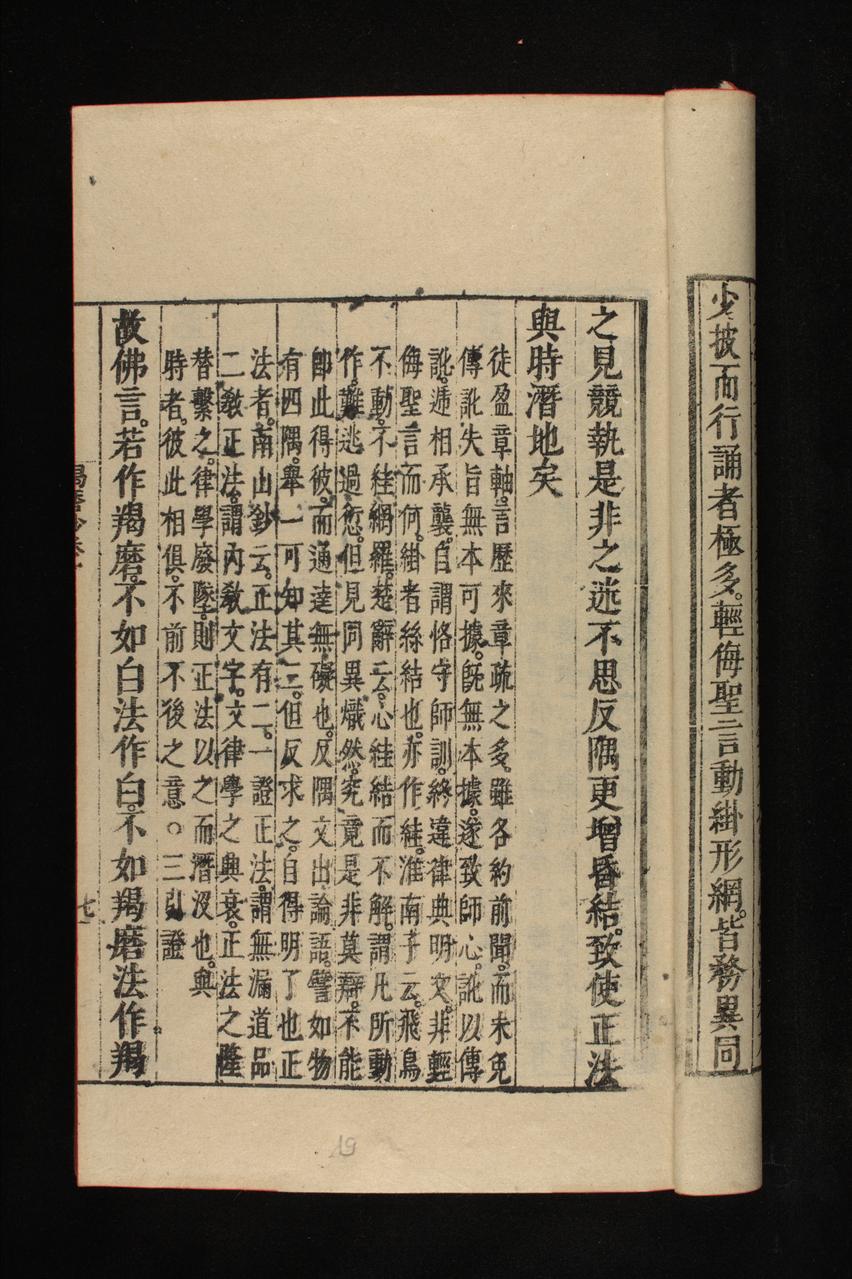 少披而行誦者極多。輕侮聖言動絓形網。皆務異同
之見競執是非之迷不思反隅更增昏結。致使正法
與時潛地矣
徒盈章軸。言歷來章疏之多。雖各約前聞。而未免
傳訛失旨無本可據。旣無本據。遂致師心。訛以傳
訛。遞相承襲。自謂恪守師訓。終違律典明文。非輕
侮聖言而何。掛者絲結也。亦作絓。淮南子云。飛鳥
不動。不絓網羅。楚辭云。心絓結而不解。謂凡所動
作。難逃過愆。但見同異熾然。究竟是非莫辯。不能
卽此得彼。而通達無礙也。反隅文出論語。譬如物
有四隅。舉一可知其三。但反求之。自得明了也正
法者。南山鈔云。正法有二。一證正法。謂無漏道品
二敎正法。謂內敎文字。文律學之興衰。正法之隆
替繫之。律學廢墜。則正法以之而潛沒也。與
時者。彼此相俱。不前不後之意。○三引證
故佛言。若作羯磨。不如白法作白。不如羯磨法作羯
七
19